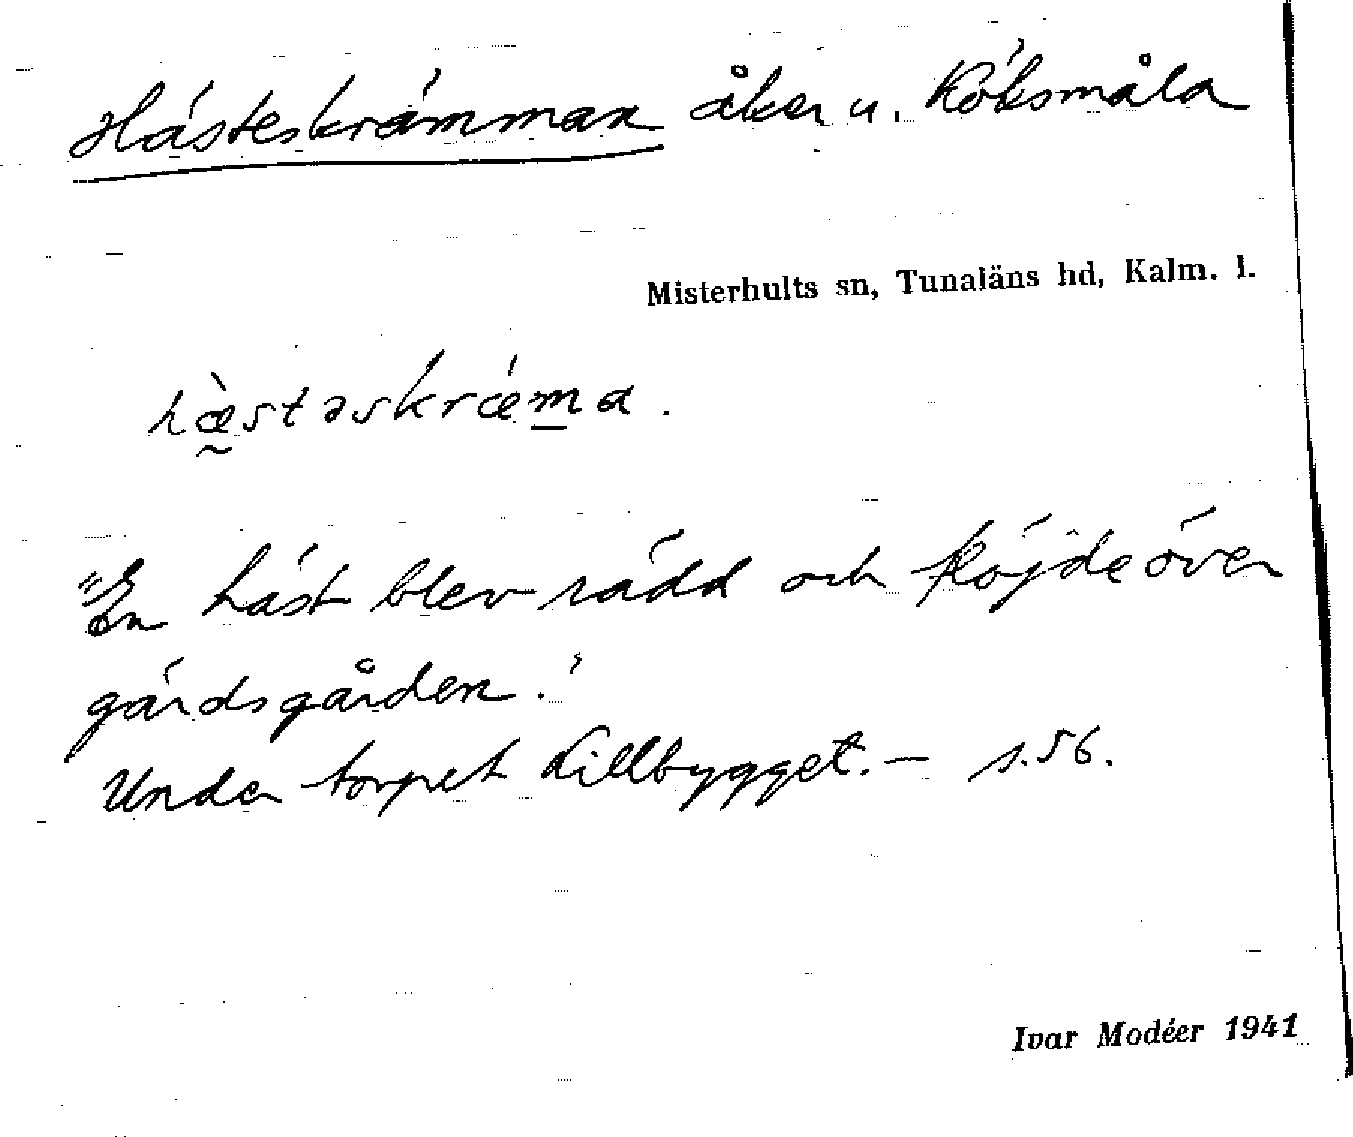 Hästeskrämman åker u. Köksmåla
Misterhults sn, Tunaläns hd, Kalm. l.
hæ̀stəskrǽma.
"En häst blev rädd och höjde över
gärdsgården."
Under torpet Lillbygget. — s. 56.
Ivar Modéer 1941